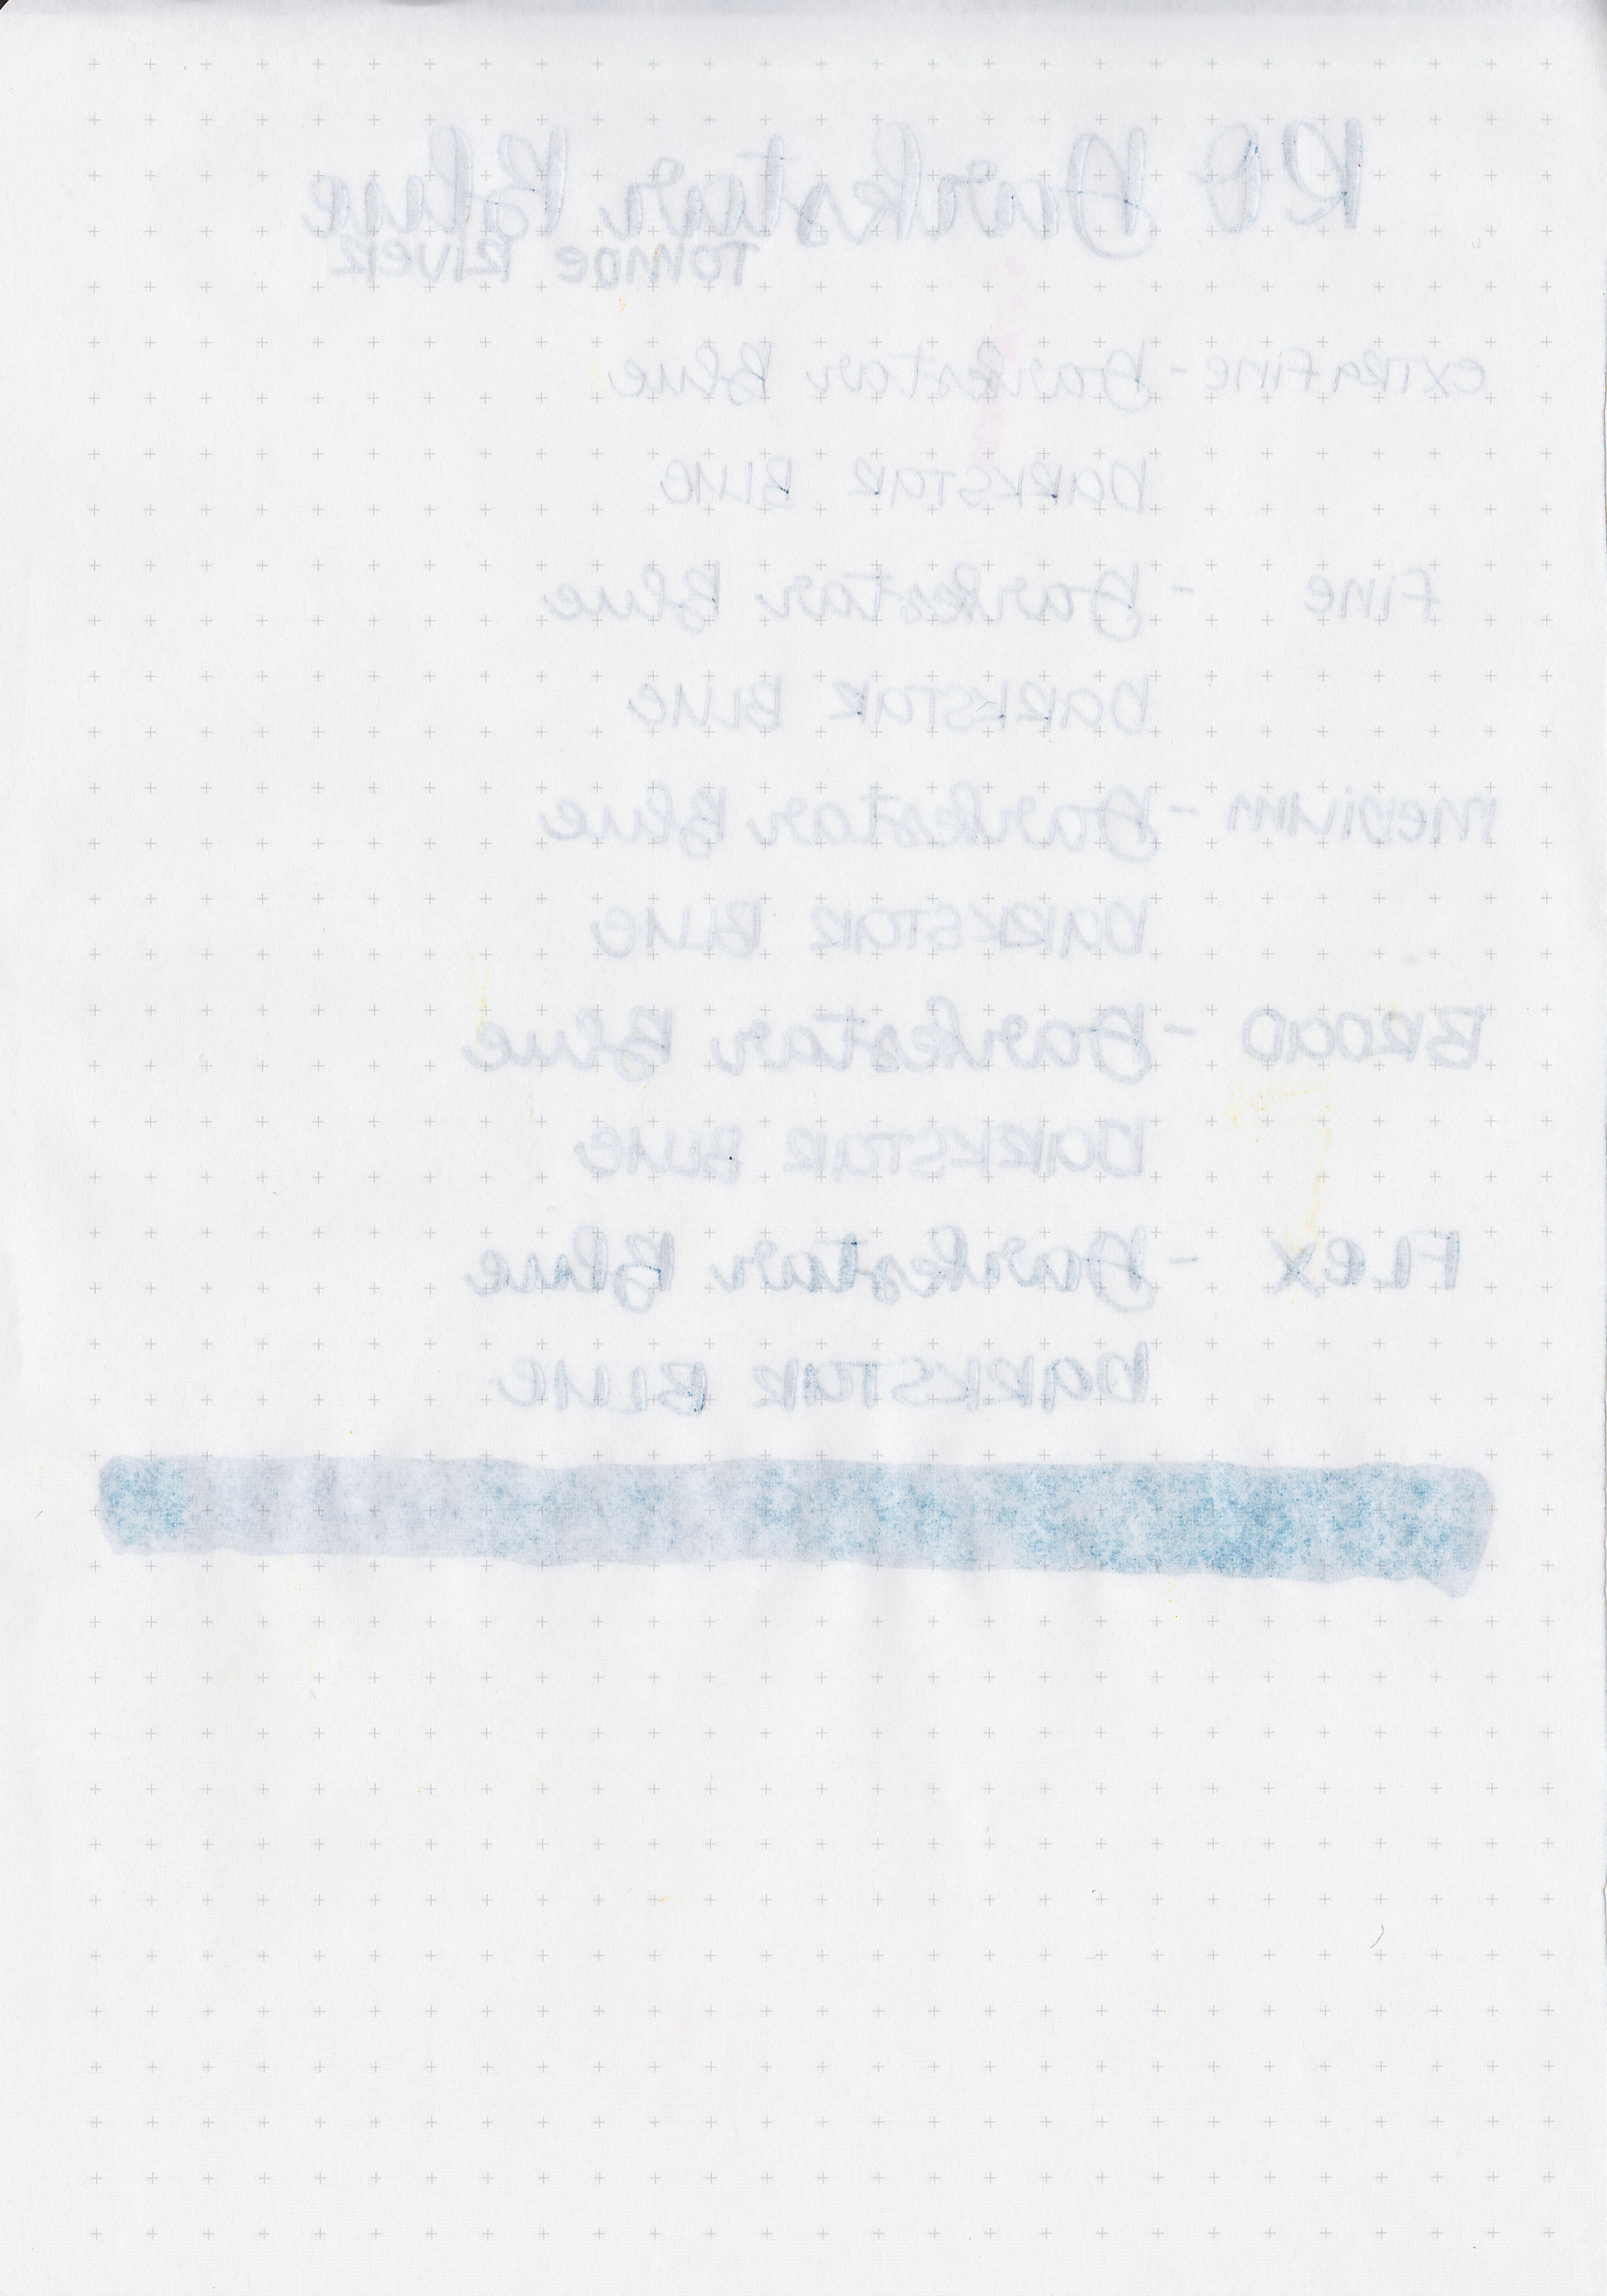 RO Darkstar Blue
TOMOE RIVER
EXTRA Fine - Darkstar Blue
DARKSTAR BLUE
Fine - Darkstar Blue
DARKSTAR BLUE
MEDIUM - Darkstar Blue
DARKSTAR BLUE
BROAD - Darkstar Blue
DARKSTAR BLUE
FLEX - Darkstar Blue
DARKSTAR BLUE